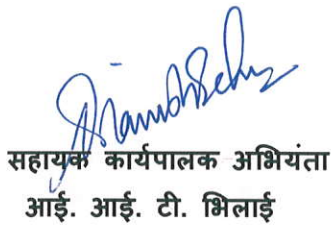 सहायक कार्यपालक अभियंता
आई. आई. टी. भिलाई